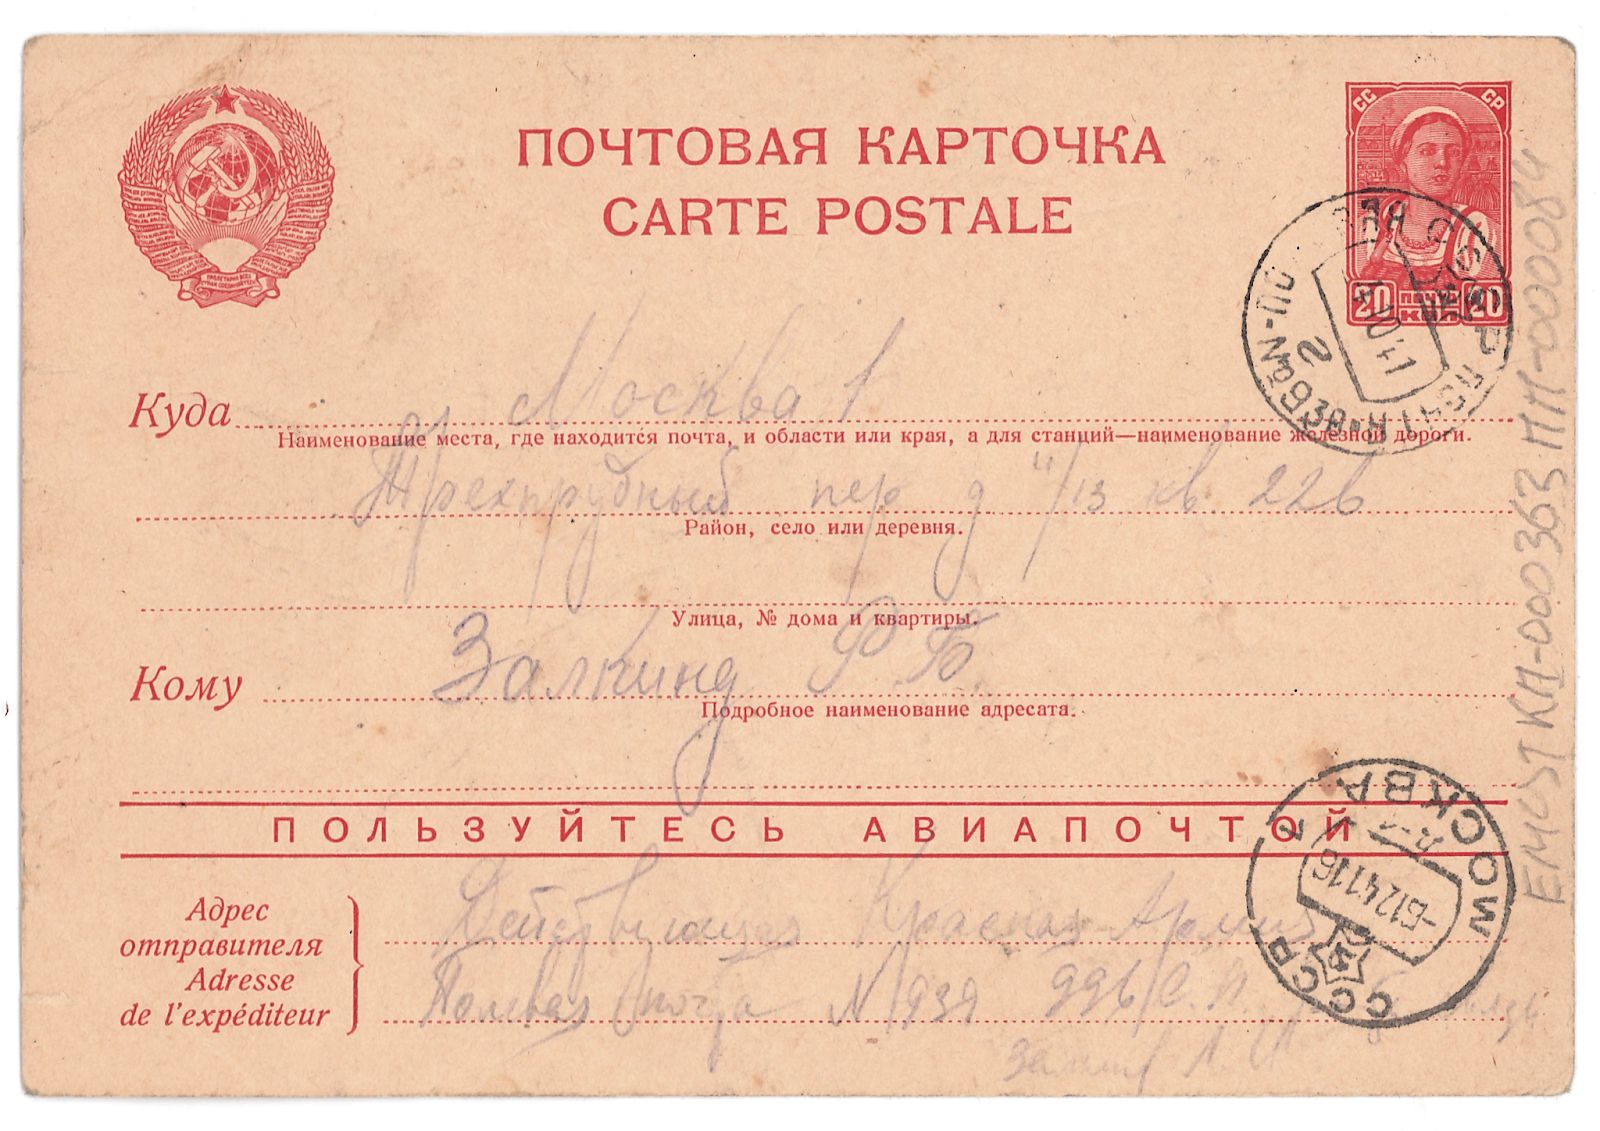 ПОЧТОВАЯ КАРТОЧКА
CARTE POSTALE
СС СР
20 ПОЧТА КОП 20
Куда Москва 1
Наименование места, где находится почта, и области или края, а для станций—наименование железной дороги.
Трехпрудный пер д 11/13 кв. 22б
Район, село или деревня.
Улица, № дома и квартиры.
Кому Залкинд Р.Б.
Подробное наименование адресата.
ПОЛЬЗУЙТЕСЬ АВИАПОЧТОЙ
Адрес
отправителя
Adresse
de l'expéditeur
Действующая Красная Армия
Полевая почта N 939 996 С.П.
МОСКВА
СССР
-6124116
EMCST КП-000363 ПП-000084